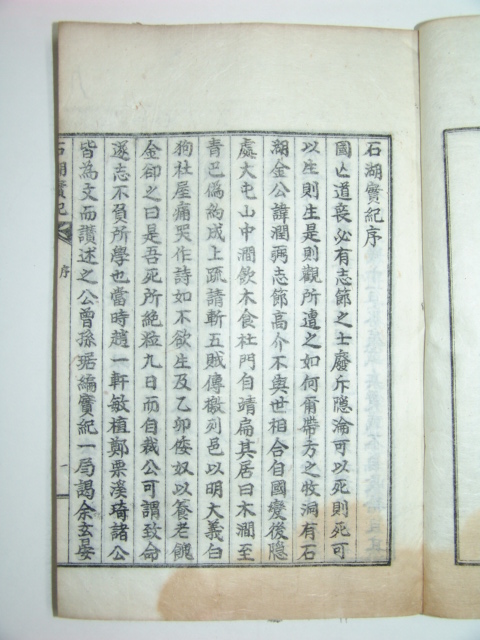 石湖實紀序
國亡道喪必有志節之士廢斥隱淪可以死則死可
以生則生是則觀所遭之如何爾帶方之牧洞有石
湖金公諱潤弼志節高介不與世相合自國變後隱
處大屯山中澗飮木食杜門自靖扁其居曰木澗至
靑巳僞約成上疏請斬五賊傳檄列邑以明大義白
狗社屋痛哭作詩如不欲生及乙卯倭奴以養老餽
金卻之曰是吾死所絶粒九日而自裁公可謂致命
遂志不負所學也當時趙一軒敏植鄭栗溪琦諸公
皆爲文而讚述之公曾孫琚編實紀一局謁余玄晏
石湖實紀 序 一